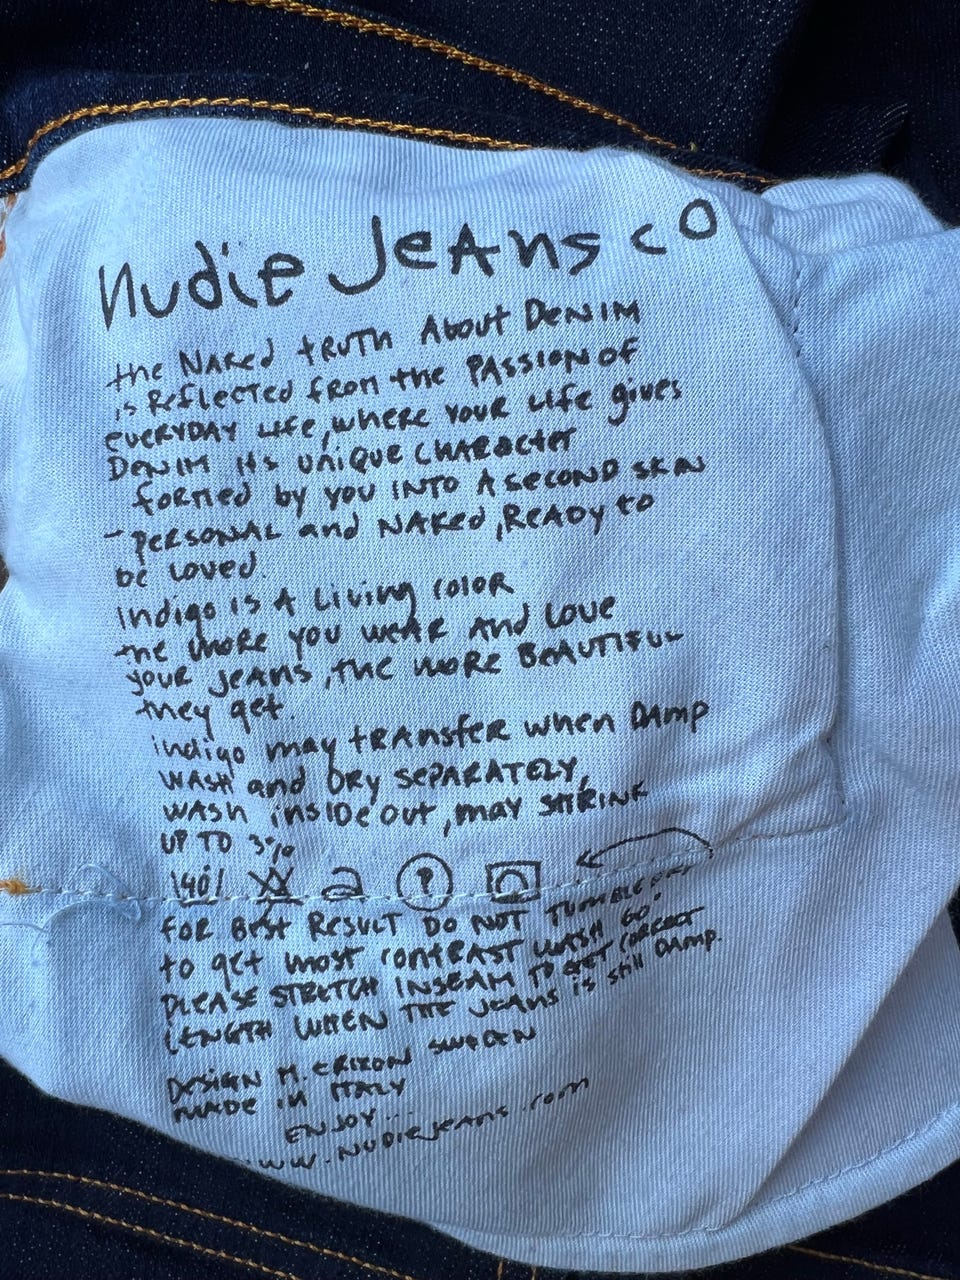 nudie Jeans co
the Naked truth About Denim
is Reflected from the Passion of
everyday Life, where your Life gives
Denim its unique character
formed by you into a second skin
- personal and naked, Ready to
be loved.
indigo is a Living color
the more you wear and love
your jeans, the more Beautiful
they get.
indigo may transfer when damp
wash and dry separately,
wash inside out, may shrink
up to 3%
40
P
for best result do not tumble dry
to get most contrast wash 60°
please stretch inseam to get correct
length when the jeans is still damp.
Design M. Erixon Sweden
made in Italy
enjoy...
www.nudiejeans.com